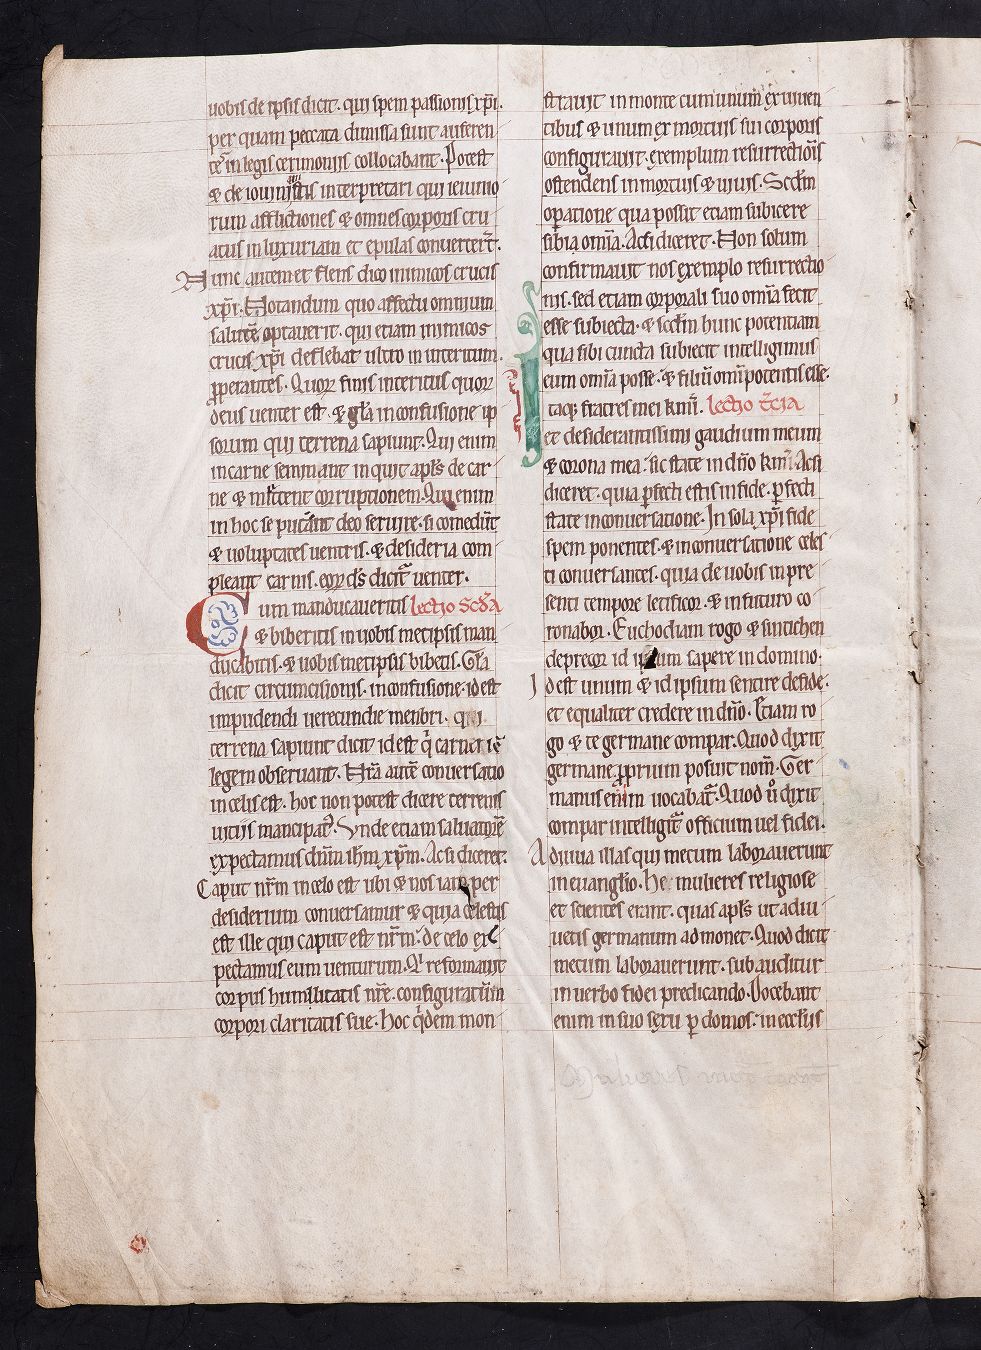 uobis de ipsis dicit. qui spem passionis xp̄i.
per quam peccata dimissa sunt auferen
tē in legis cerimoniis collocabant. Potest
& de iouinistis interpretari qui ieiunio
rum afflictiones & omnes corporis cru
atus in luxuriam et epulas conuerter̄t.
Nunc autem et flens dico inimicos crucis
xp̄i. Notandum quo affectu omnium
salutē optauerit. qui etiam inimicos
crucis xp̄i deflebat ultro in interitum.
ꝓperantes. Quoꝝ finis interitus quoꝝ
deus uenter est. & gl̄a in confusione ip
sorum qui terrena sapiunt. Qui enim
in carne seminant inquit apl̄s de car
ne & metent corruptionem. Qui enim
in hoc se putant deo seruire. si comedūt
& uoluptates uentris. & desideria com
pleant carnis. eoꝝ ds̄ dicit̄ uenter.
Cum manducaueritis lectio scd̄a
& biberitis in uobis metipsis man
ducabitis. & uobis metipsis bibetis. Gl̄a
dicit circumcisionis. in confusione. id est
impudendi uerecundie menbri. qui
terrena sapiunt dicit id est q̄ carnaliē
legem obseruant. Nr̄a autē conuersatio
in celis est. hoc non potest dicere terrenis
uitiis mancipat᷒. Vnde etiam saluatorē
expectamus dn̄m ih̄m xp̄m. Acsi diceret.
Caput nr̄m in celo est ubi & nos iam per
desiderium conuersamur & quia celestis
est ille qui caput est nr̄m. de celo ex
pectamus eum uenturum. Q̄ reformauit
corpus humilitatis nr̄e. configuratum
corpori claritatis sue. hoc q̄dem mon
strauit in monte cum unum ex uiuen
tibus & unum ex mortuis sui corporis
configurauit. exemplum resurrectiōis
ostendens in mortuis & uiuis. Scd̄m
operatione qua possit etiam subicere
sibi a omīa. Acsi diceret. Non solum
confirmauit nos exemplo resurrectio
nis. sed etiam corporali suo omīa fecit
esse subiecta. & scd̄m hunc potentiam
qua sibi cuncta subiecit intelligimus
eum omīa posse. & filiū omīpotentis esse.
Itaq; fratres mei kmī. lectio t̄cia
et desiderantissimi gaudium meum
& corona mea. sic state in dn̄o kmī. Acsi
diceret. quia ꝑfecti estis in fide. ꝑfecti
state in conuersatione. In sola xp̄i fide
spem ponentes. & in conuersatione celes
ti conuersantes. quia de uobis in pre
senti tempore letificor. & in futuro co
ronabor. Euchodiam rogo & sintichen
deprecor id ipsum sapere in domino.
Id est unum & id ipsum sentire de fide.
et equaliter credere in dn̄o. Etiam ro
go & te germane compar. Quod dixit
germane ꝓprium posuit nom̄. Ger
manus enim uocabat̄. Quod ū dixit
compar intelligit̄ officium uel fidei.
Adiuua illas qui mecum laborauerunt
in euanglīo. He mulieres religiose
et scientes erant. quas apl̄s ut adiu
uetis germanum admonet. Quod dicit
mecum laborauerunt. subauditur
in uerbo fidei predicando. Docebant
enim in suo sexu ꝑ domos. in eccl̄iis